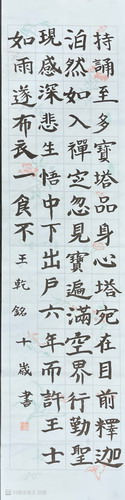 持誦至多寶塔品身心塔宛在目前釋迦
泊然如入禪定忽見寶遍滿空界行勤聖
現感深悲生悟中下出戶六年而許王士
如雨遂布衣一食不
王乾銘十歲書